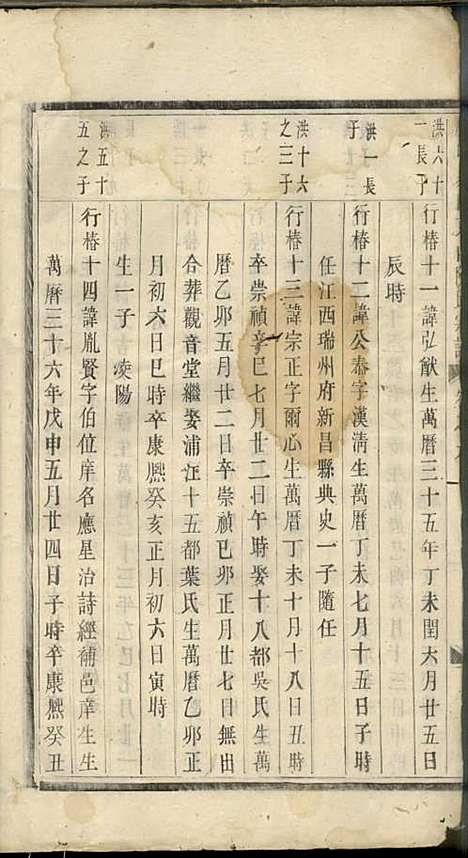 洪六十
一長子
行椿十一諱弘猷生萬曆三十五年丁未閏六月廿五日
辰時
洪一長
子
行椿十二諱公泰字漢淸生萬曆丁未七月十五日子時
任江西瑞州府新昌縣典史一子隨任
洪十六
之三子
行椿十三諱宗正字爾心生萬曆丁未十月十八日丑時
卒崇禎辛巳七月廿二日午時娶十八都吳氏生萬
曆乙卯五月廿二日卒崇禎己卯正月廿七日無出
合葬觀音堂繼娶浦江十五都葉氏生萬曆乙卯正
月初六日巳時卒康熙癸亥正月初六日寅時
生一子 凌陽
洪五十
五之子
行椿十四諱胤賢字伯位庠名應星治詩經補邑庠生生
萬曆三十六年戊申五月廿四日子時卒康熙癸丑